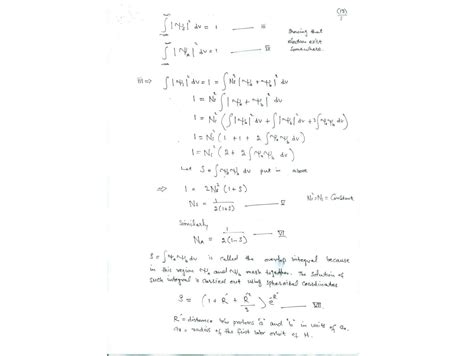 (13)
∫|ψs|² dv = 1 ——— II
showing that
electron exist
somewhere.
∫|ψa|² dv = 1 ——— III
⇒ ∫|ψs|² dv = 1 = ∫Ns²|ψa + ψb|² dv
1 = Ns² ∫|ψa + ψb|² dv
1 = Ns² (∫|ψa|² dv + ∫|ψb|² dv + 2∫ψaψb dv)
1 = Ns² (1 + 1 + 2∫ψaψb dv)
1 = Ns² (2 + 2∫ψaψb dv)
Let S = ∫ψaψb dv put in above
⇒ 1 = 2Ns² (1+S)
Ns = 1/2(1+S) ——— V
= Constant
Similarly
Na = 1/2(1-S) ——— VI
S = ∫ψaψb dv is called the overlap integral because
in this region ψa and ψb mesh together. The solution of
such integral is carried out using spheroidal coordinates
S = (1 + R + R²/3) e^-R ——— VII
R = distance b/w protons "a" and "b" in units of a₀.
a₀ = radius of the first bohr orbit of H.